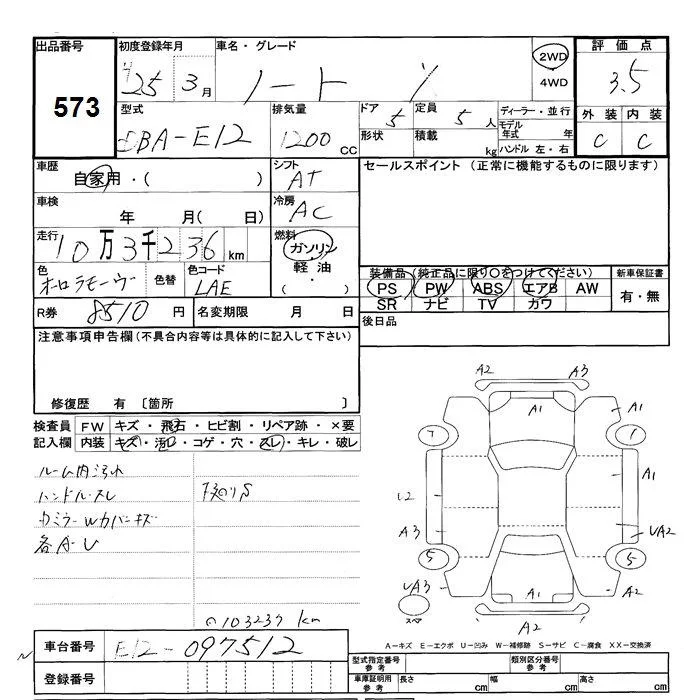 出品番号
573
初度登録年月
H25年3月
車名・グレード
ノート
2WD
4WD
評価点
3.5
外装 内装
C C
型式
DBA-E12
排気量
1200 CC
ドア
5
定員
5人
形状
積載
kg
ディーラー・並行
モデル年式 年
ハンドル 左・右
車歴
自家用・( )
シフト
AT
セールスポイント (正常に機能するものに限ります)
車検
年 月( 日)
冷房
AC
走行
10万3千236km
燃料
ガソリン・軽油・( )
色
オーロラモーヴ
色替
色コード
LAE
装備品 (純正品に限り〇をつけてください)
PS PW ABS エアB AW
SR ナビ TV カワ
新車保証書
有・無
R券
8510円
名変期限 月 日
後日品
注意事項申告欄 (不具合内容等は具体的に記入して下さい)
修復歴 有 〔箇所 〕
検査員記入欄
FW キズ・飛石・ヒビ割・リペア跡・×要
内装 キズ・汚れ・コゲ・穴・スレ・キレ・破レ
ルーム内汚れ
ハンドルスレ
下廻りS
カバーキズ
各A・U
◎103237 km
A2 A3
A1
A1
7 1
A1
A3
UA2
5 5
UA3
A1
A1
A2
スペア
A-キズ E-エクボ U-凹み W-補修跡 S-サビ C-腐食 XX-交換済
車台番号
E12-097512
登録番号
型式指定番号
参考
類別区分番号
参考
車庫証明用
参考
長さ cm 幅 cm 高さ cm